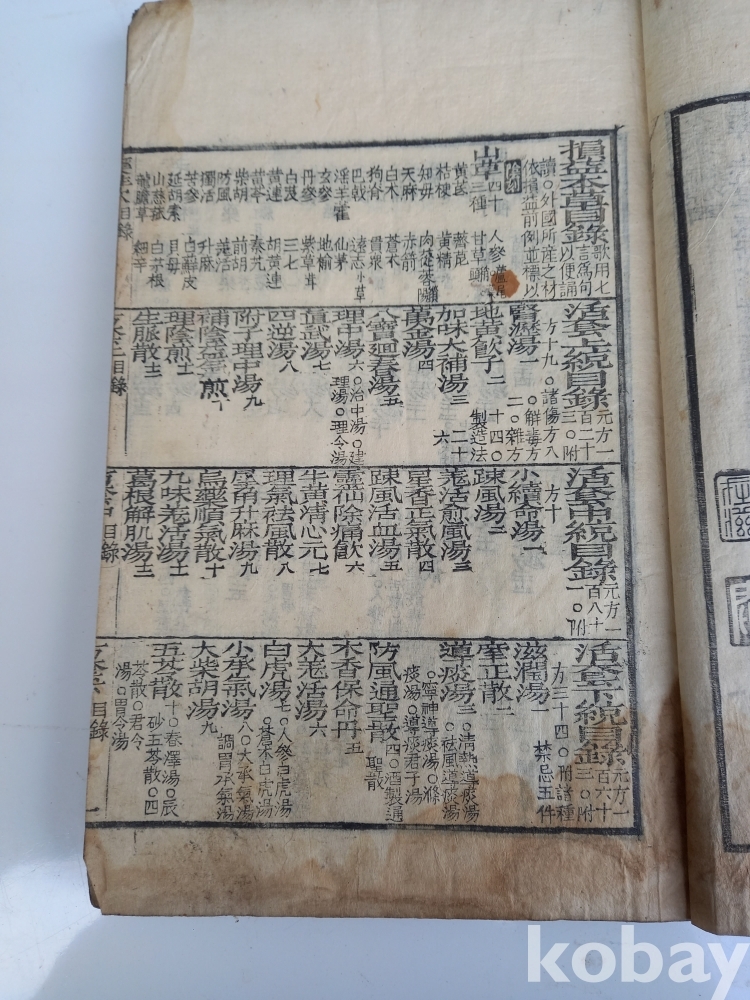 損益本草目錄 歌用七言爲句以便誦
讀○外國所產之材
依損益前例並標以
山草 四十三種
人參 蘆尾
甘草
黃芪 薺苨
桔梗 黃精
知母 肉蓯蓉
天麻 赤箭
白朮 蒼朮
狗脊 貫衆
巴戟 遠志 小草
淫羊藿 仙茅
玄參 地楡
丹參 紫草
白及 三七
黃連 胡黃連
黃芩 秦艽
柴胡 前胡
防風 羌活
獨活 升麻
苦參 白鮮皮
延胡索 貝母
山慈菰 白茅根
龍膽草 細辛
活套上統目錄 元方一百二十三○附
方十九○諸傷方八
○解毒方二○雜方
十四○製造法二十六
腎瀝湯 一
地黃飮子 二
加味大補湯 三
萬金湯 四
八寶廻春湯 五
理中湯 六○治中湯○建理湯○理令湯
眞武湯 七
四逆湯 八
附子理中湯 九
補陰益氣煎 十
理陰煎 十一
生脈散 十二
活套中統目錄 元方一百八十一○附
方十
小續命湯 一
疎風湯 二
羌活愈風湯 三
星香正氣散 四
疎風活血湯 五
靈仙除痛飮 六
牛黃淸心元 七
理氣祛風散 八
犀角升麻湯 九
烏藥順氣散 十
九味羌活湯 十一
葛根解肌湯 十二
活套下統目錄 元方一百六十三○附
方三十四○附諸種
禁忌五件
滋潤湯 一
牽正散 二
導痰湯 三○淸熱導痰湯○祛風導痰湯
○寧神導痰湯○滌痰湯○導痰君子湯
防風通聖散 四○酒製通聖散
木香保命丹 五
大羌活湯 六
白虎湯 七○人參白虎湯○蒼朮白虎湯
小承氣湯 八○大承氣湯調胃承氣湯
大柴胡湯 九
五苓散 十○春澤湯○辰砂五苓散○四
苓散○君令湯○胃令湯
方藥下 目錄
kobay